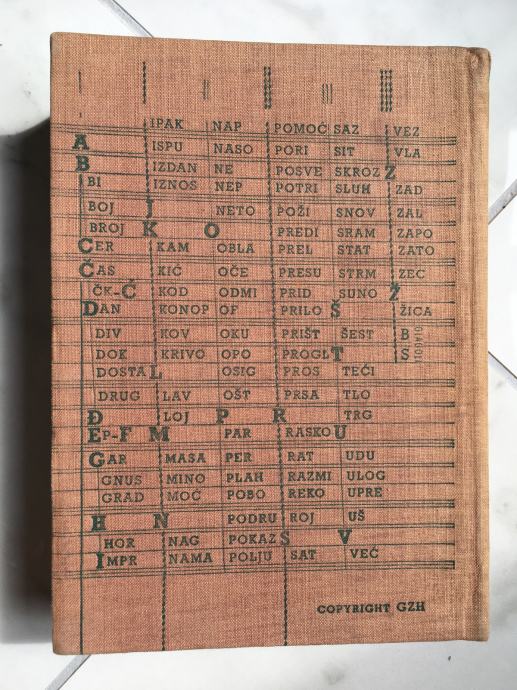 IPAK NAP POMOĆ SAZ VEZ
A ISPU NASO PORI SIT VLA
B IZDAN NE POSVE SKROZ Z
BI IZNOS NEP POTRI SLUH ZAD
BOJ J NETO POŽI SNOV ZAL
BROJ K O PREDI SRAM ZAPO
CER KAM OBLA PREL STAT ZATO
ČAS KIĆ OČE PRESU STRM ZEC
ČK-Ć KOD ODMI PRID SUNO Ž
DAN KONOP OF PRILO Š ŽICA
DIV KOV OKU PRIŠT ŠEST B
DOK KRIVO OPO PROGLT T S
DOSTAL OSIG PROS TEĆI
DRUG LAV OŠT PRSA TLO
Đ LOJ P R TRG
EP-F M PAR RASKO U
GAR MASA PER RAT UDU
GNUS MINO PLAH RAZMI ULOG
GRAD MOĆ POBO REKO UPRE
H N PODRU ROJ UŠ
HOR NAG POKAZ S V
IMPR NAMA POLJU SAT VEĆ
COPYRIGHT GZH